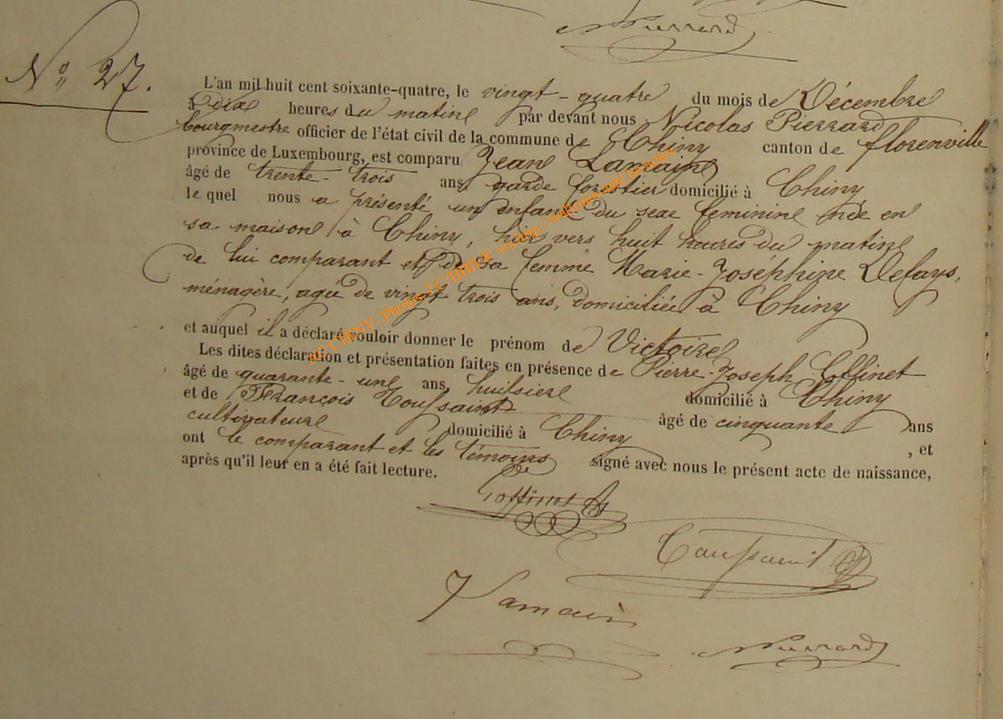 Pierrard
N° 27.
L'an mil huit cent soixante-quatre, le vingt-quatre du mois de Décembre
à dix heures du matin par devant nous Nicolas Pierrard
bourgmestre officier de l'état civil de la commune de Chiny canton de florenville
province de Luxembourg, est comparu Jean Lamain
âgé de trente-trois ans, garde forestier domicilié à Chiny
le quel nous a présenté un enfant du sexe feminin née en
sa maison à Chiny, hier vers huit heures du matin
de lui comparant et de sa femme Marie-Joséphine Defays,
ménagère, agée de vingt trois ans, domiciliée à Chiny
et auquel il a déclaré vouloir donner le prénom de Victoire
Les dites déclaration et présentation faites en présence de Pierre-Joseph
âgé de quarante-un ans, huissier domicilié à Chiny
et de François Toussaint âgé de cinquante ans
cultivateur domicilié à Chiny, et
ont le comparant et les témoins signé avec nous le présent acte de naissance,
après qu'il leur en a été fait lecture.
Toussaint
J Lamain
Pierrard